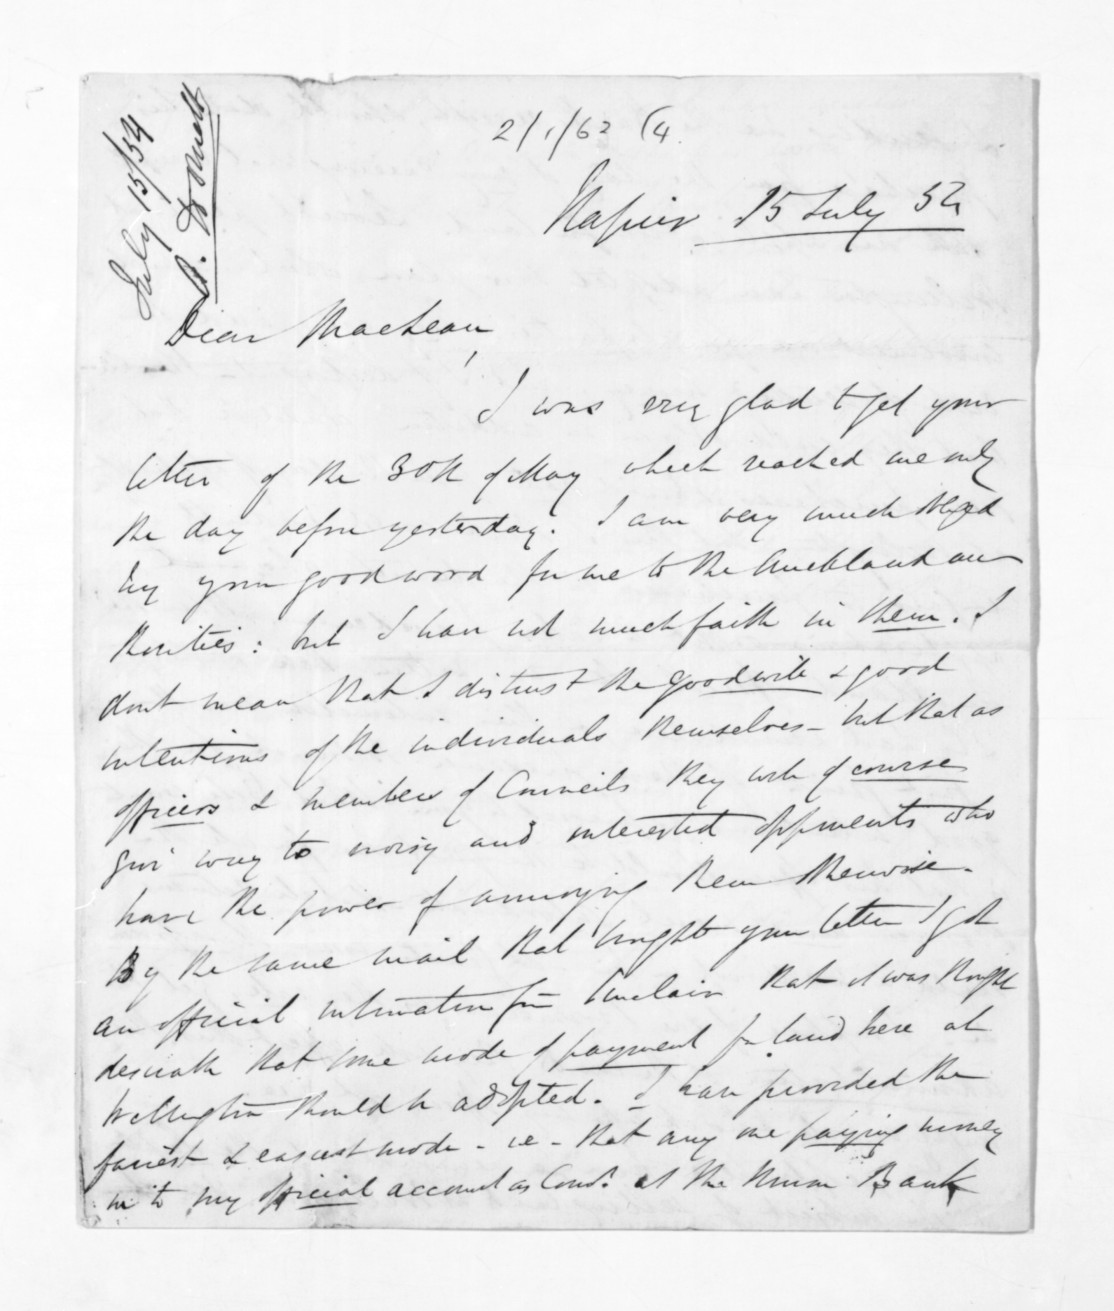 July 15/54
A. Domett
2/1/62 (4.
Napier 15 July 54
Dear MacLean,
I was very glad to get your
letter of the 30th of May which reached me only
the day before yesterday. I am very much obliged
by your good word for me to the Auckland au
thorities: but I have not much faith in them. I
dont mean that I distrust the goodwill & good
intentions of the individuals themselves - but that as
officers & members of Councils they will of course
give way to noisy and interested opponents who
have the power of annoying them otherwise.
By the same mail that brought your letter I got
an official intimation from Sinclair that it was thought
desirable that some mode of payment for land here at
Wellington should be adopted. I have provided the
fairest & easiest mode - ie - that any one paying money
in to my official account as Comr. at the Union Bank